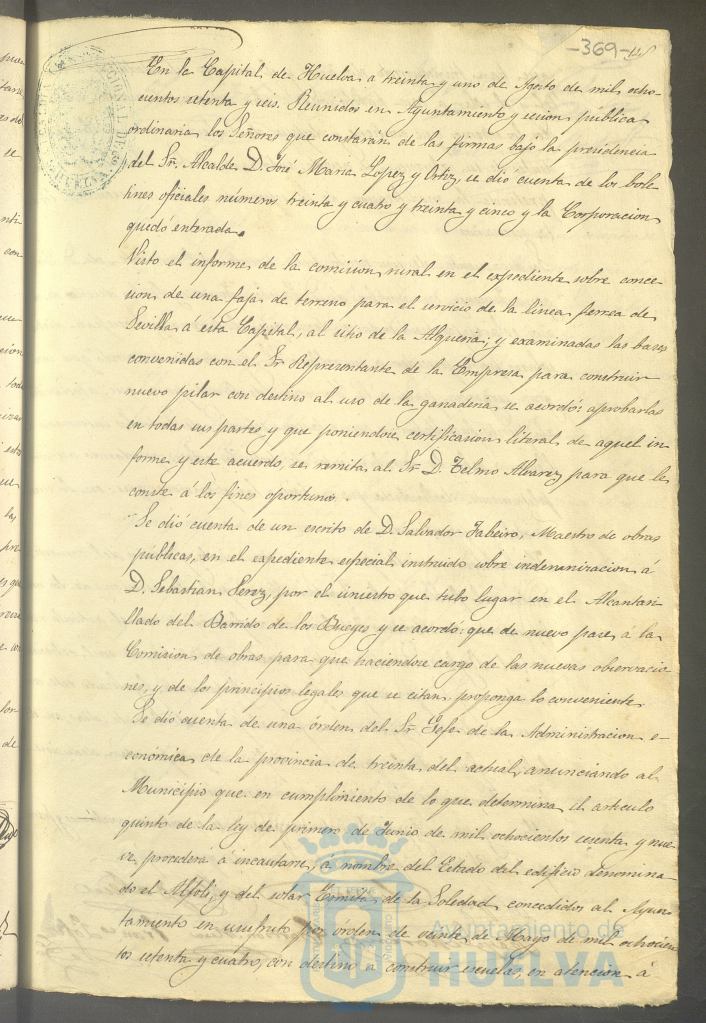 -369-
En la Capital de Huelva a treinta y uno de Agosto de mil ocho-
cientos setenta y seis. Reunidos en Ayuntamiento y secion pública
ordinaria los Señores que constarán de las firmas bajo la presidencia
del Sr. Alcalde D. José Maria Lopez y Ortiz, se dió cuenta de los bole
tines oficiales números treinta y cuatro y treinta y cinco y la Corporacion
quedó enterada.
Visto el informe de la comision rural en el expediente sobre conce-
sion de una faja de terreno para el servicio de la linea ferrea de
Sevilla á esta Capital, al sitio de la Alqueria; y examinadas las bases
convenidas con el Sr Representante de la Empresa para construir
nuevo pilar con destino al uso de la ganaderia se acordó: aprobarlas
en todas sus partes y que poniendose certificacion literal de aquel in-
forme y este acuerdo, se remita al Sr. D. Telmo Alvarez para que le
conste á los fines oportunos.
Se dió cuenta de un escrito de D. Salvador Fabeiro, Maestro de obras
públicas, en el expediente especial instruido sobre indemnizacion á
D. Sebastian Perez, por el siniestro que tubo lugar en el Alcantari-
llado del Barrido de los Bueyes y se acordó: que de nuevo pase á la
Comision de obras para que haciendose cargo de las nuevas observacio
nes, y de los principios legales que se citan proponga lo conveniente
Se dió cuenta de una órden del Sr. Gefe de la Administracion e-
conómica de la provincia de treinta del actual, anunciando al
Municipio que en cumplimiento de lo que determina el articulo
quinto de la ley de primero de Junio de mil ochocientos sesenta y nue
ve procederá á incautarse, á nombre del Estado del edificio denomina
do el Alfolí, y del solar Ermita de la Soledad, concedidos al Ayun-
tamiento en usufruto por órden de veinte de Mayo de mil ochocien
tos setenta y cuatro, con destino a construir escuelas, en atencion á
Ayuntamiento de
HUELVA